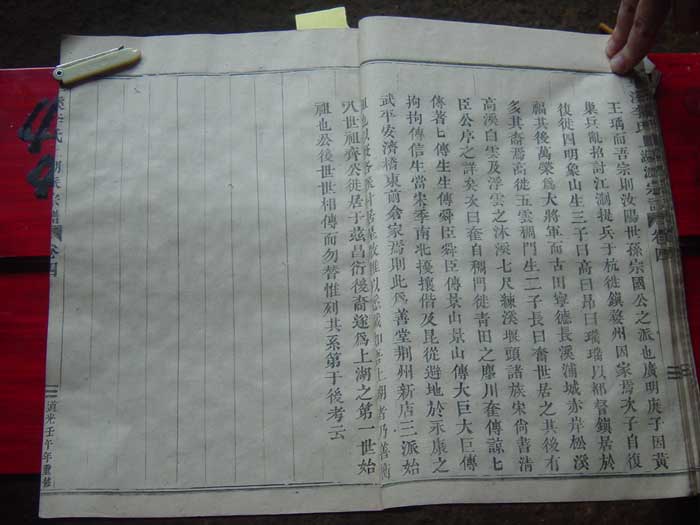 王瑀而吾宗則汝陽世孫宗國公之派也廣明庚子因黃
巢兵亂招討江湖提兵于杭徙鎮婺州因家焉次子自復
後徙四明象山生三子曰高曰昂曰瓆瓆以都督鎮居於
福其後萬榮爲大將軍而古田寧德長溪浦城赤岸松溪
多其裔焉高徙五雲稠門生二子長曰奮世居之其後有
高溪白雲及浮雲之沐溪七尺練溪堰頭諸族宋尚書清
臣公序之詳矣次曰奎自稠門徙青田之䴢川奎傳諒七
傳著七傳生生傳舜臣舜臣傳景山景山傳大巨大巨傳
拘拘傳信生當宋季南北擾攘偕及昆從避地於永康之
武平安濟橋東前倉家焉則此爲善堂荆州新店三派始
八世祖齊公徙居于茲昌衍後裔遂爲上湖之第一世始
祖也公後世世相傳而勿替惟列其系第于後考云
卷四
卷四
道光壬午年重修